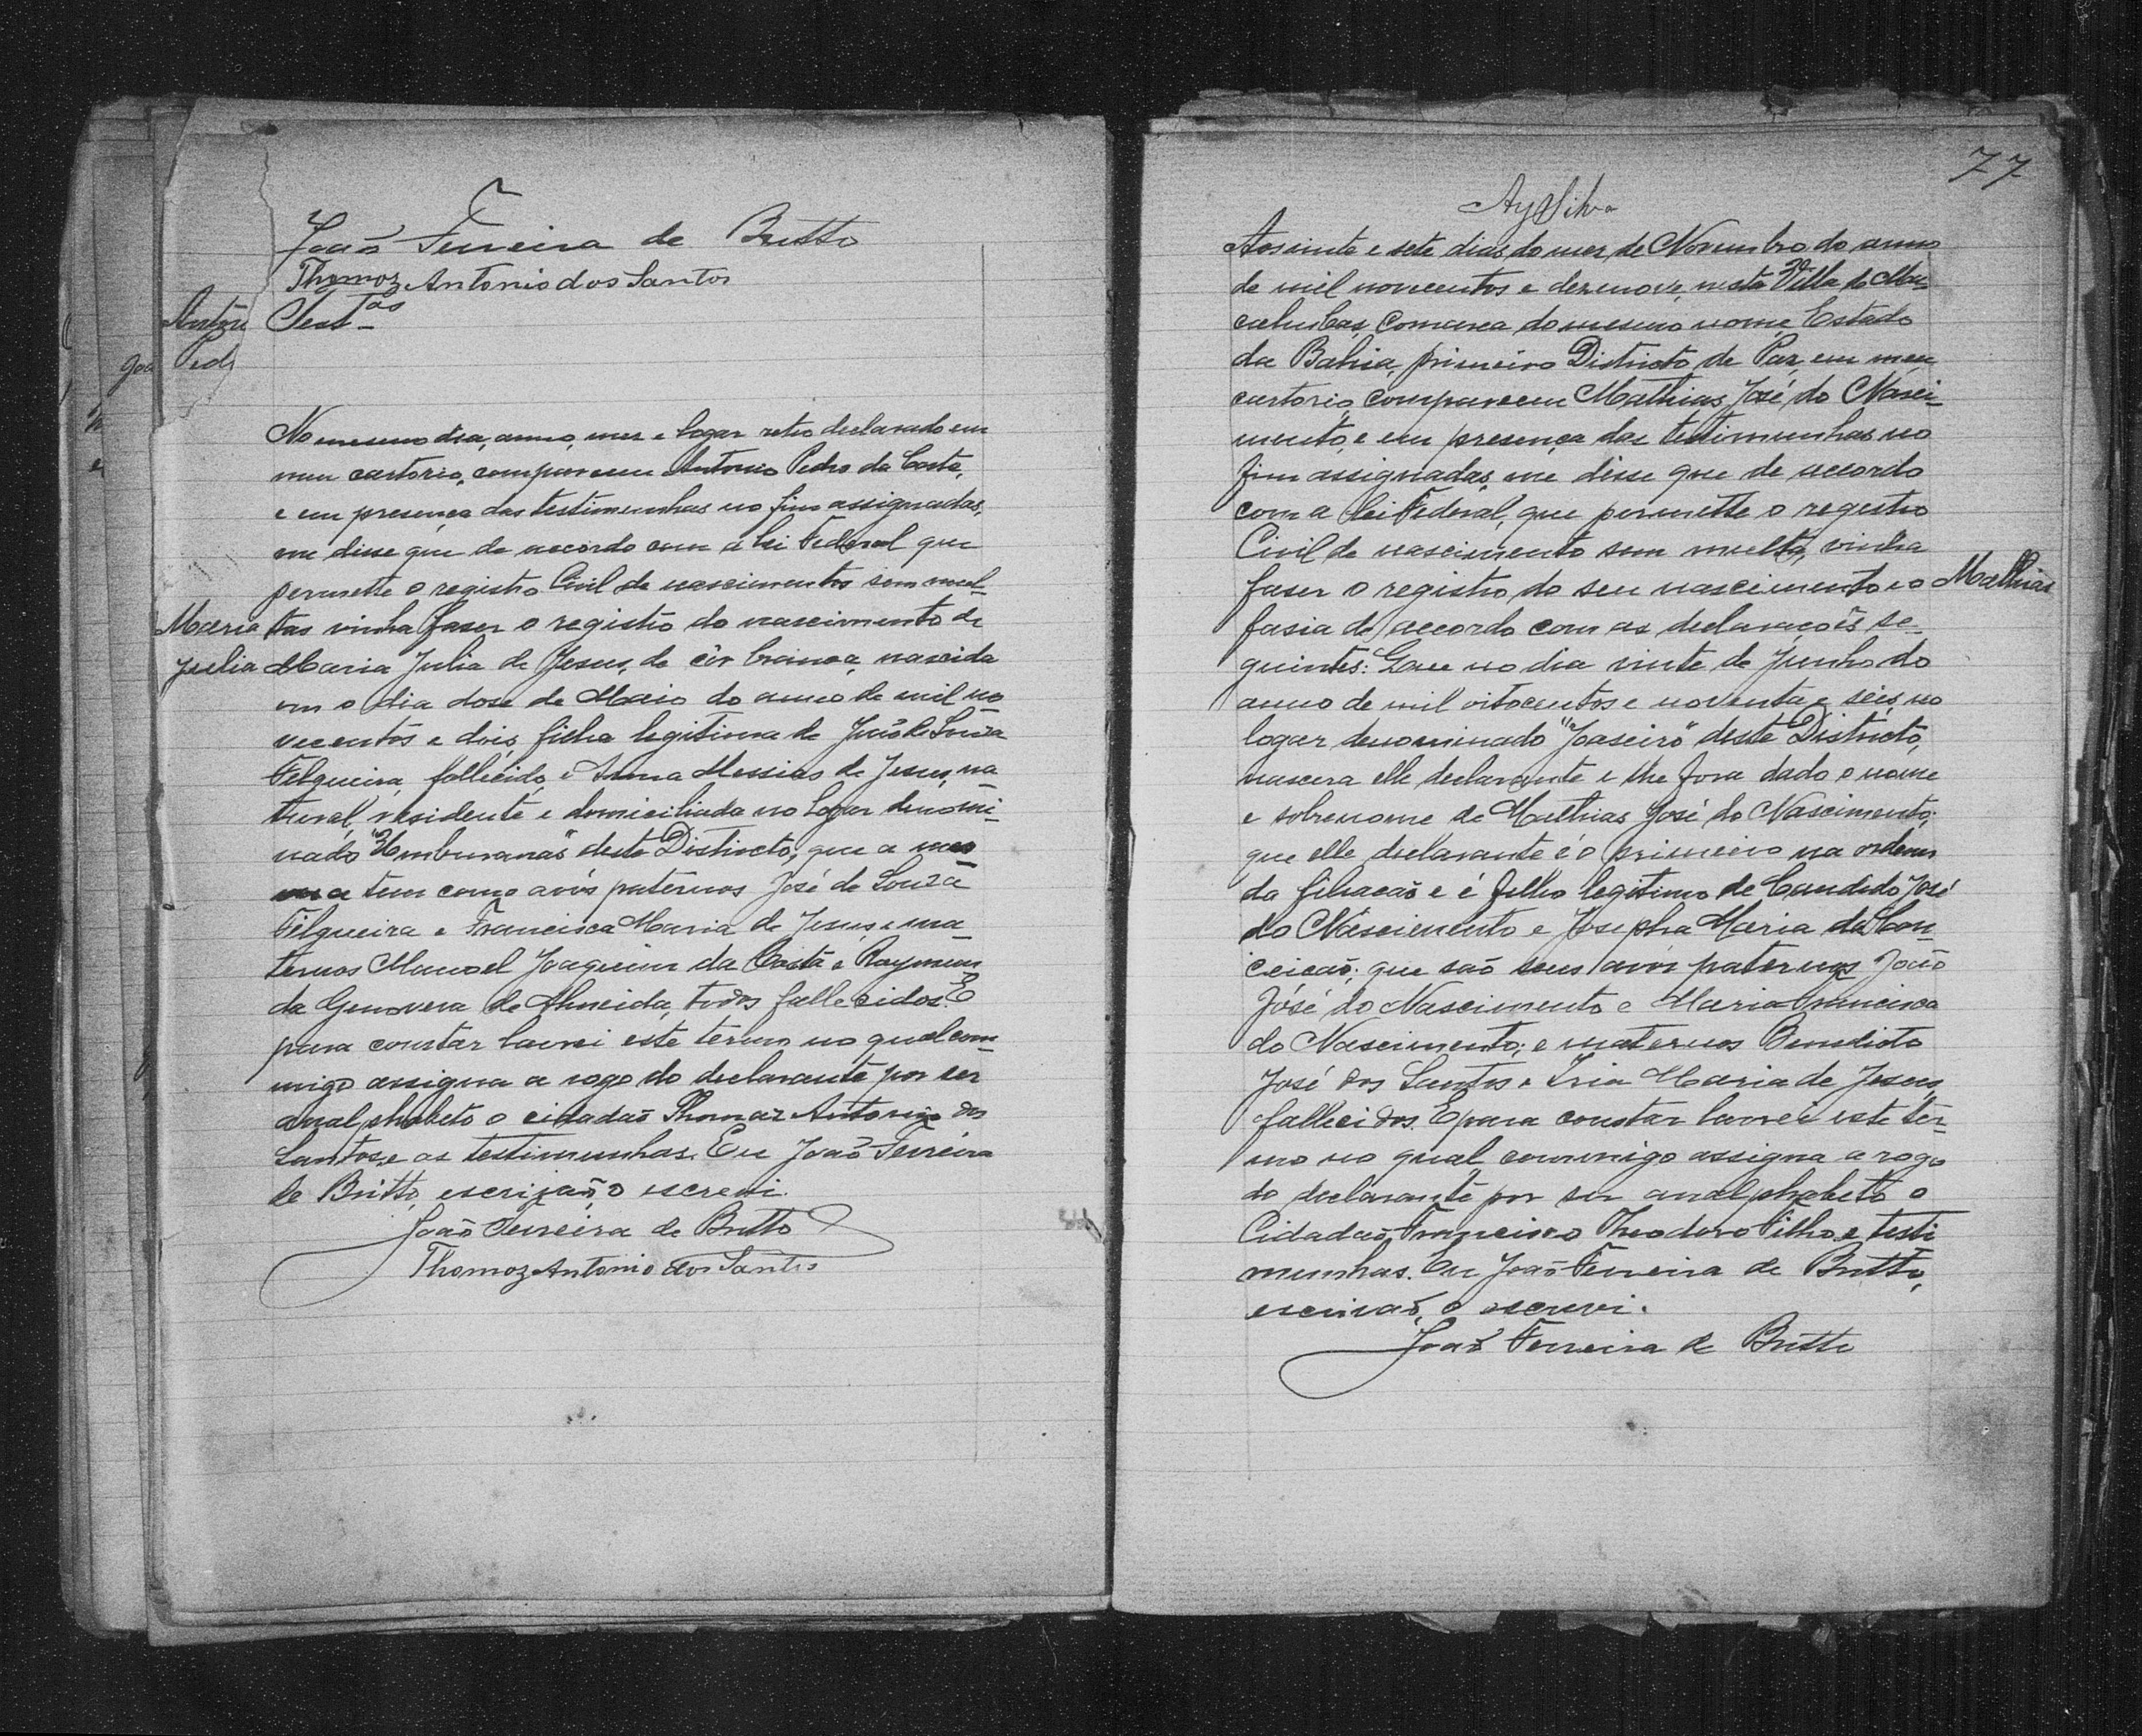 João Ferreira de Britto
Thomoz Antonio dos Santos
Test.as
Antôni
Ped
Joa
No mesmo dia, anno, mez e logar retro declarado em
meu cartorio, compareceu Antonio Pedro da Costa,
e em presença das testimunhas no fim assignadas,
me disse que de accordo com a lei Federal que
permette o registro Civil de nascimentos sem mul-
Maria
tas vinha faser o registro do nascimento de
Julia
Maria Julia de Jesus, de côr branca, nascida
em o dia dose de Maio do anno de mil no
vecentos e dois, filha legitima de João de Souza
Felgueira, fallecido, e Anna Messias de Jesus, na
tural, residente e domiciliada no logar denomi-
nado "Umburanas" deste Districto; que a mes
ma tem como avós paternos José de Souza
Filgueira e Francisca Maria de Jesus, e ma-
ternos Manoel Joaquim da Costa e Raymun
da Genovera de Almeida, todos fallecidos. E
para constar lavrei este termo no qual com-
migo assigna a rogo do declarante por ser
analphabeto o cidadão Thomaz Antonio dos
Santos, e as testimunhas. Eu João Ferreira
de Britto, escrivão, o escrevi.
João Ferreira de Britto
Thomoz Antonio dos Santos
77
Ay Silva
Aos vinte e sete dias do mez de Novembro do anno
de mil novecentos e dezenove, nesta Villa de Ma-
cahubas, Comarca do mesmo nome, Estado
da Bahia, primeiro Districto de Paz, em meu
cartorio, compareceu Mathias José do Nasci-
mento, e em presença das testimunhas no
fim assignadas, me disse que de accordo
com a lei Federal, que permette o registro
Civil de nascimento sem multa, vinha
faser o registro do seu nascimento e o
Mathias
fasia de accordo com as declaraçoẽs se-
guintes: Que no dia vinte de Junho do
anno de mil oitocentos e noventa e séis, no
logar denominado "Joaseiro" deste Districto,
nascera elle declarante e lhe fora dado o nome
e sobrenome de Mathias José do Nascimento;
que elle declarante é o primeiro na ordem
da filiacão e é filho legitimo de Candido José
do Nascimento e Josepha Maria da Con-
ceicão; que são seus avós paternos João
José do Nascimento e Maria Francisca
do Nascimento; e maternos Benedicto
José dos Santos e Iria Maria de Jesus,
fallecidos. E para constar lavrei este ter-
mo no qual commigo assigna a rogo
do declarante por ser analphabeto o
Cidadão Francisco Theodoro Filho e testi
munhas. Eu João Ferreira de Britto,
escrivão, o escrevi.
João Ferreira de Britto